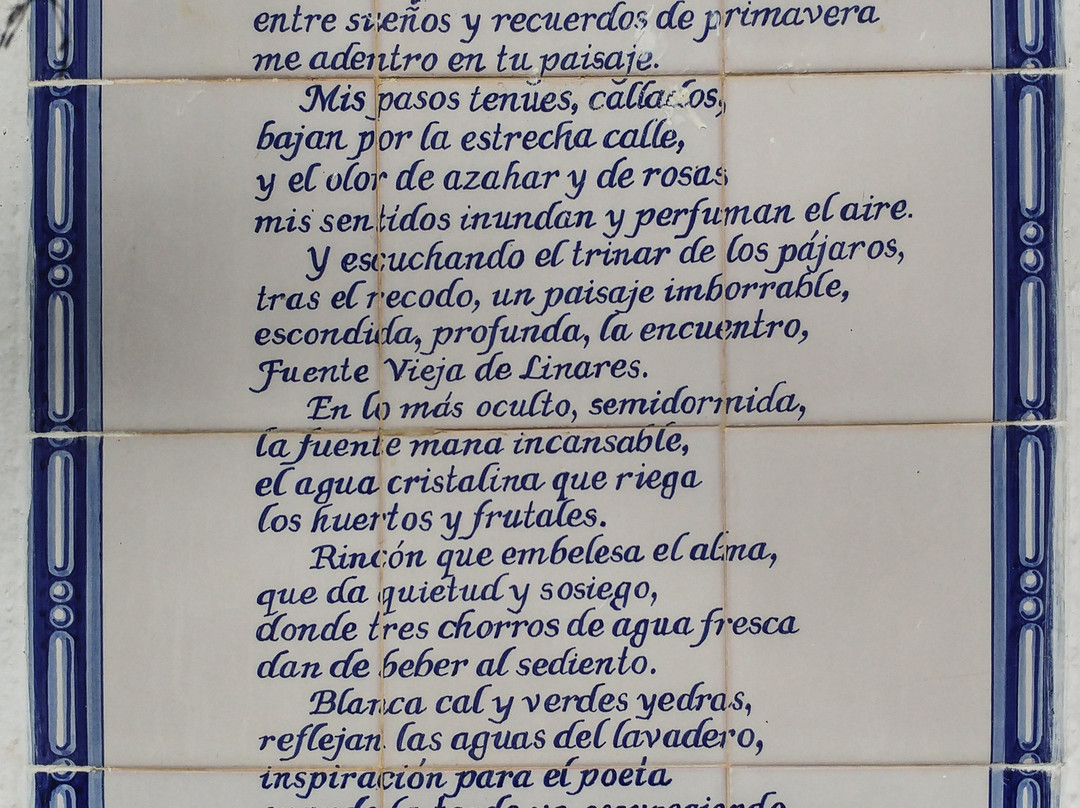 entre sueños y recuerdos de primavera
me adentro en tu paisaje.
Mis pasos tenues, callados,
bajan por la estrecha calle,
y el olor de azahar y de rosas
mis sentidos inundan y perfuman el aire.
Y escuchando el trinar de los pájaros,
tras el recodo, un paisaje imborrable,
escondida, profunda, la encuentro,
Fuente Vieja de Linares.
En lo más oculto, semidormida,
la fuente mana incansable,
el agua cristalina que riega
los huertos y frutales.
Rincón que embelesa el alma,
que da quietud y sosiego,
donde tres chorros de agua fresca
dan de beber al sediento.
Blanca cal y verdes yedras,
reflejan las aguas del lavadero,
inspiración para el poeta